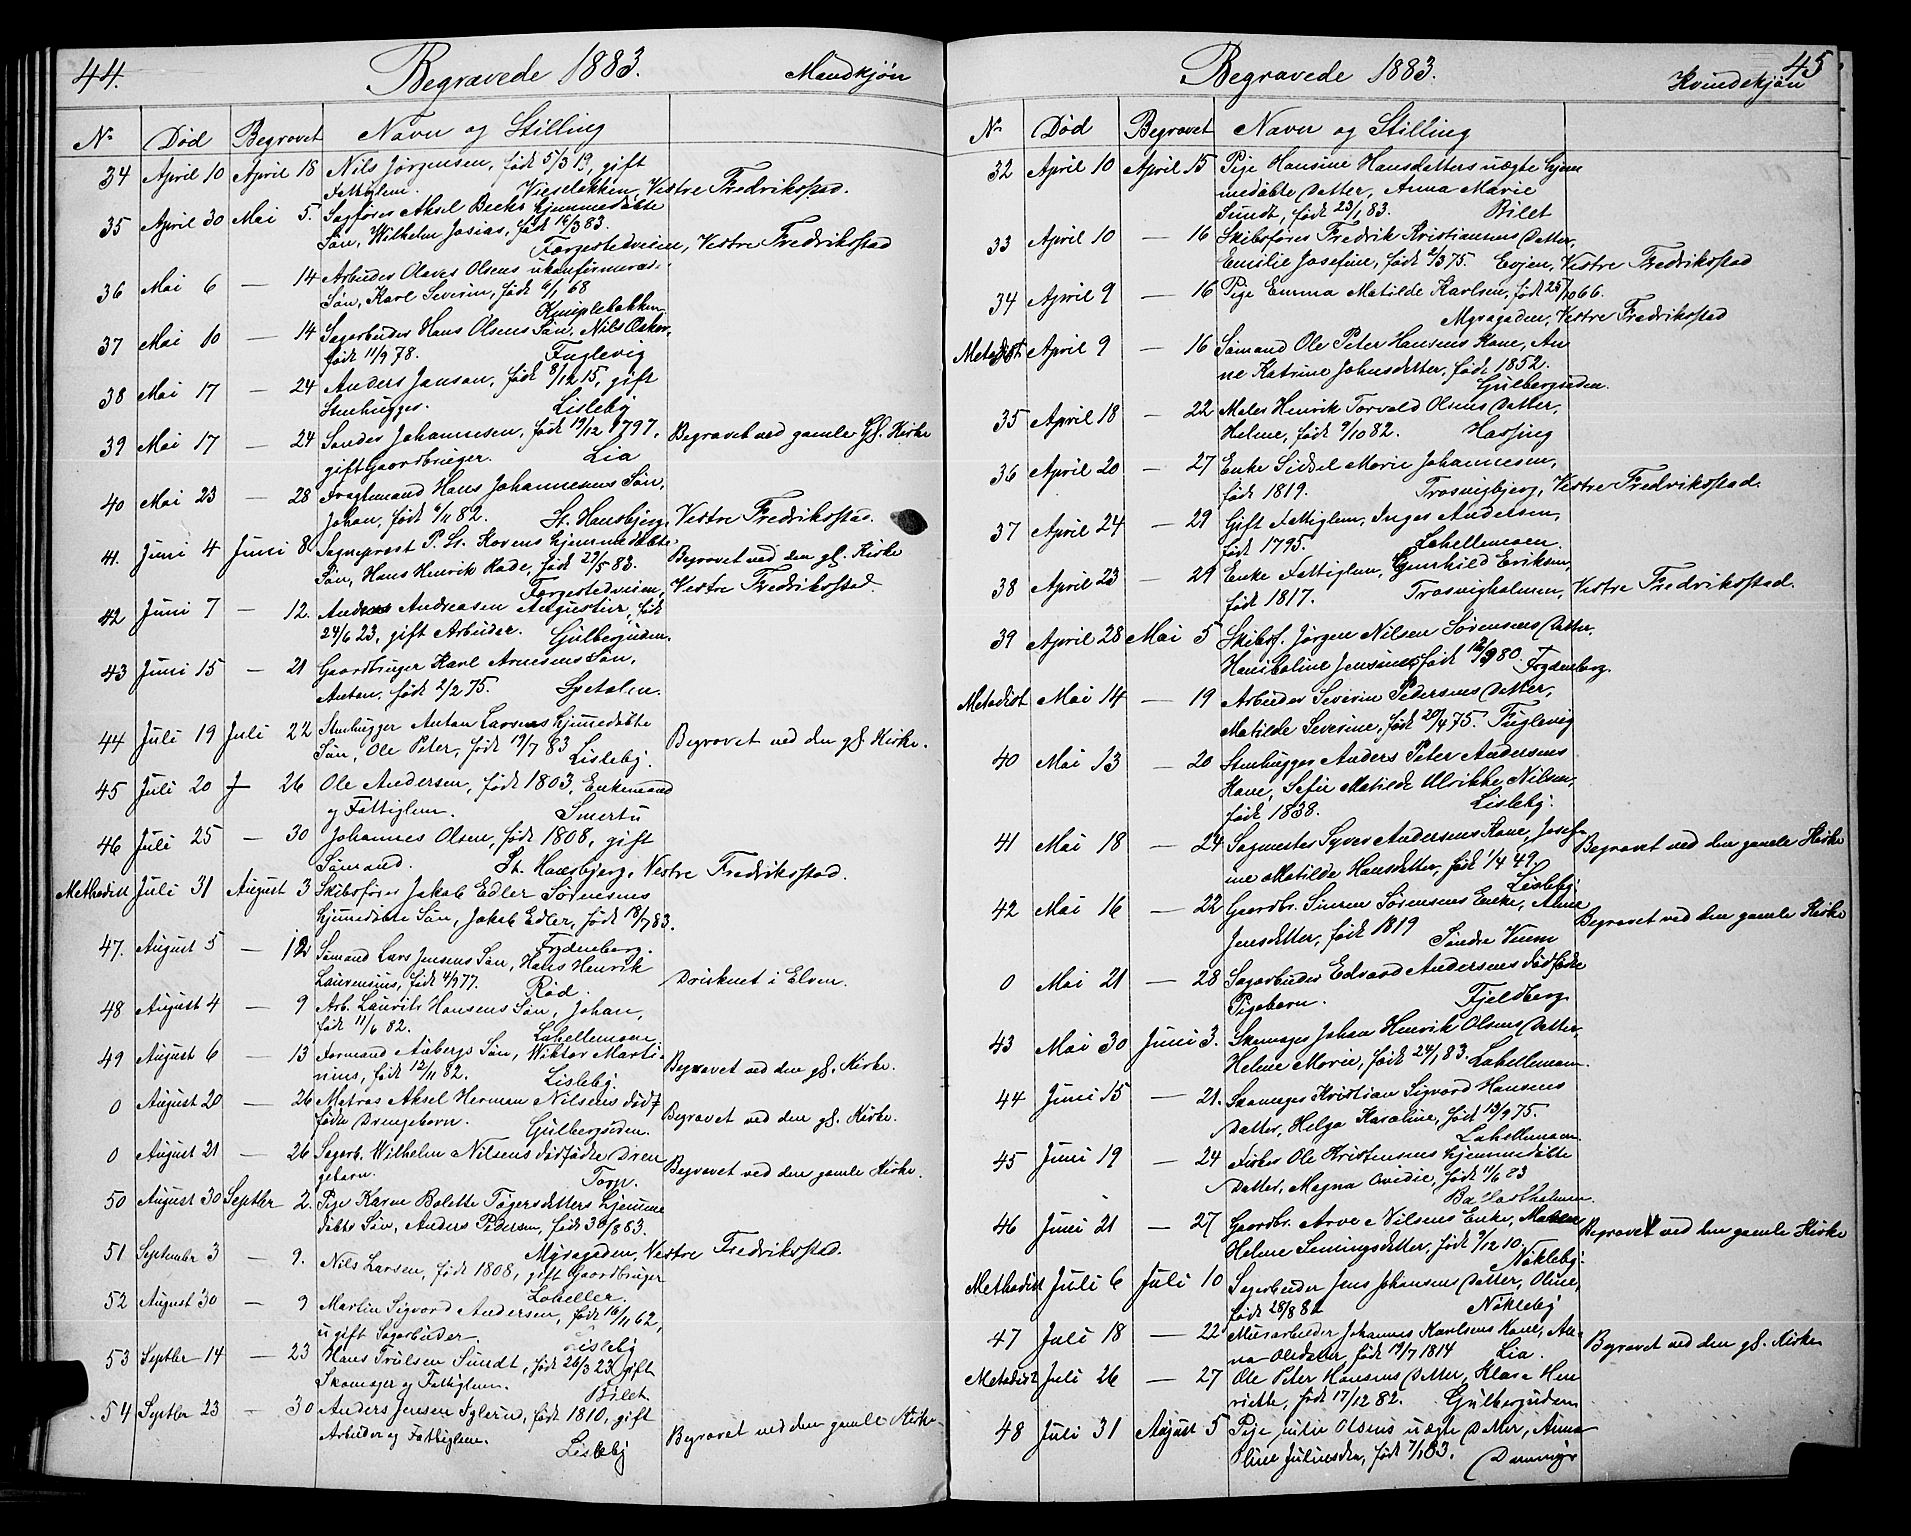 44.
Begravede 1883.
Mandkjön
No Död Begravet Navn og Stilling
34 April 10 April 18 Nils Jörgensen, født 5/3 19, gift
Fattiglem. Vieselökken, Vestre Fredriksstad.
35 April 30 Mai 5. Sagförer Aksel Becks hjemmedöbte
Sön, Wilhelm Josias, født 16/3 83.
Forgestedveien, Vestre Fredriksstad
36 Mai 6 — 14 Arbeider Olaves Olsens ukonfirmered
Sön, Karl Severin, født 6/1 68
Kniplebakken.
37 Mai 10 — 14 Sagarbeider Hans Olsens Sön, Nils Oskar,
født 11/9 78. Fuglevig
38 Mai 17 — 24 Anders Janson, født 8/12 15, gift
Stenhugger. Lisleby
39 Mai 17 — 24 Sander Johannesen, født 19/12 1797, Begravet ved gamle Gl. Kirke
gift Gaardbruger. Lia
40 Mai 23 — 28 Fragtemand Hans Johannesens Sön,
Johan, født 6/11 82. St. Hansbjerg, Vestre Fredriksstad.
41. Juni 4 Juni 8 Sogneprest P. St. Korens hjemmedöbte
Sön, Hans Henrik Rade, født 29/5 83. Begravet ved den gl. Kirke
Forgestedveien, Vestre Fredriksstad.
42 Juni 7 — 12. Anders Andreasen Augustin, født
24/6 23, gift Arbeider. Gulbergsiden.
43 Juni 15 — 21 Gaardbruger Karl Arnesens Sön,
Anton, født 2/2 75. Spetalen.
44 Juli 19 Juli 22 Stenhugger Anton Larsens hjemmedöbte
Sön, Ole Peter, født 19/7 83 Lisleby. Begravet ved den gl. Kirke.
45 Juli 20 — 26 Ole Andersen, født 1803, Enkemand
og Fattiglem. Smertu
46 Juli 25 — 30 Johannes Olsen, født 1808, gift
Sömand. St. Hansbjerg, Vestre Fredriksstad.
Methodist Juli 31 August 3 Skibsförer Jakob Edler Sörensens
hjemmedöbte Sön, Jakob Edler, født 18/7 83.
Frydenberg.
47. August 5 — 12 Sömand Lars Jensens Sön, Hans Henrik
Laurensius, født 4/9 77. Röd. Druknet i Elven.
48 August 4 — 9 Arb. Laurits Hansens Sön, Johan,
født 11/6 82. Lahellemoen
49 August 6 — 13 Formand Aabergs Sön, Wiktor Marti-
nius, født 12/11 82. Lisleby. Begravet ved den gl. Kirke.
0 August 20 — 26 Matros Aksel Herman Nilsens död-
födte Drengebarn. Gulbergsiden. Begravet ved den gl. Kirke.
0 August 21 — 26 Sagarb. Wilhelm Nilsens dödfödte Dren
gebarn. Torp. Begravet ved den gamle Kirke.
50 August 30 Septbr 2. Pige Karen Bolette Tögersdatters hjemme
döbte Sön, Anders Pedersen, født 30/8 83.
Myragaden, Vestre Fredriksstad.
51 September 3 — 9. Nils Larsen, født 1808, gift Gaardbruger
Laheller.
52 August 30 — 9 Martin Sigvard Andersen, født 16/11 62,
ugift Sagarbeider. Lisleby
53 Septbr 14 — 23 Hans Trulsen Sundt, født 26/3 23, gift
Skomager og Fattiglem. Bilet
54 Septbr 23 — 30 Anders Jensen, født 1810, gift
Arbeider og Fattiglem. Lisleby Begravet ved den gamle Kirke
45
Begravede 1883.
Kvindekjön
No Död Begravet Navn og Stilling
32 April 10 April 15 Pige Hansine Hansdatters uægte hjem
medöbte Datter, Anna Marie
Sundt, født 23/1 83. Bilet
33 April 10 — 16 Skibsförer Fredrik Kristiansens Datter,
Emilie Josefine, født 2/3 75. Evjen, Vestre Fredriksstad
34 April 9 — 16 Pige Emma Matilde Karlsen, født 25/10 66.
Myragaden, Vestre Fredriksstad
Metodist April 9 — 16 Sömand Ole Peter Hansens Kone, An
ne Katrine Johnsdatter, født 1852.
Gulbergsiden.
35 April 18 — 22 Maler Henrik Torvald Olsens Datter,
Helene, født 9/10 82. Hassing
36 April 20 — 27 Enke Sidsel Marie Johannesen,
født 1819. Trosvigbjerg, Vestre Fredriksstad.
37 April 24 — 29 Gift Fattiglem, Inger Andersen,
født 1795. Lahellemoen.
38 April 23 — 29 Enke Fattiglem, Gunhild Eriksen,
født 1817. Trosvigholmen, Vestre Fredriksstad.
39 April 28 Mai 5 Skibsf. Jörgen Nilsen Sörensens Datter,
Hansboline Jensine, født 16/9 80. Frydenberg.
Metodist Mai 14 — 19 Arbeider Severin Pedersens Datter,
Matilde Severine, født 20/4 75. Fuglevig
40 Mai 13 — 20 Stenhugger Anders Peter Andersens
Kone, Sofie Matilde Ulrikke Nilsen,
født 1838. Lisleby.
41 Mai 18 — 24 Sagmester Syver Andersens Kone, Josef-
ine Matilde Hansdatter, født 1/4 49. Begravet ved den gamle Kirke
Lisleby.
42 Mai 16 — 22 Gaardbr. Simen Sörensens Enke, Anne
Jensdatter, født 1819 Söndre Veum Begravet ved den gamle Kirke
0 Mai 21 — 28 Sagarbeider Edvard Andersens dödfödte
Pigebarn. Fjeldberg.
43 Mai 30 Juni 3. Skomager Johan Henrik Olsens Datter,
Helene Marie, født 24/1 83. Lahellemoen.
44 Juni 15 — 21. Skomager Kristian Sigvard Hansens
Datter, Helga Karoline, født 13/9 75.
Lahellemoen
45 Juni 19 — 24 Fisker Ole Kristensens hjemmedöbte
Datter, Magna Ovidie, født 11/6 83
46 Juni 21 — 27 Gaardbr. Arve Nilsens Enke, Maren
Helene Semingsdatter, født 9/12 10. Begravet ved den gamle Kirke
Nökleby.
Methodist Juli 6 Juli 10 Sagarbeider Jens Johansens Datter, Oline,
født 28/8 82 Nökleby
47 Juli 18 — 22 Murarbeider Johannes Karlsens Kone, An-
na Olsdatter, født 19/7 1814 Lia. Begravet ved den gl. Kirke
Metodist Juli 26 — 27 Ole Peter Hansens Datter, Klara Hen
riette, født 17/12 82. Gulbergsiden
48 Juli 31 August 5 Pige Julie Olsens uægte Datter, Anna
Oline Juliusden, født 7/1 83. Damming